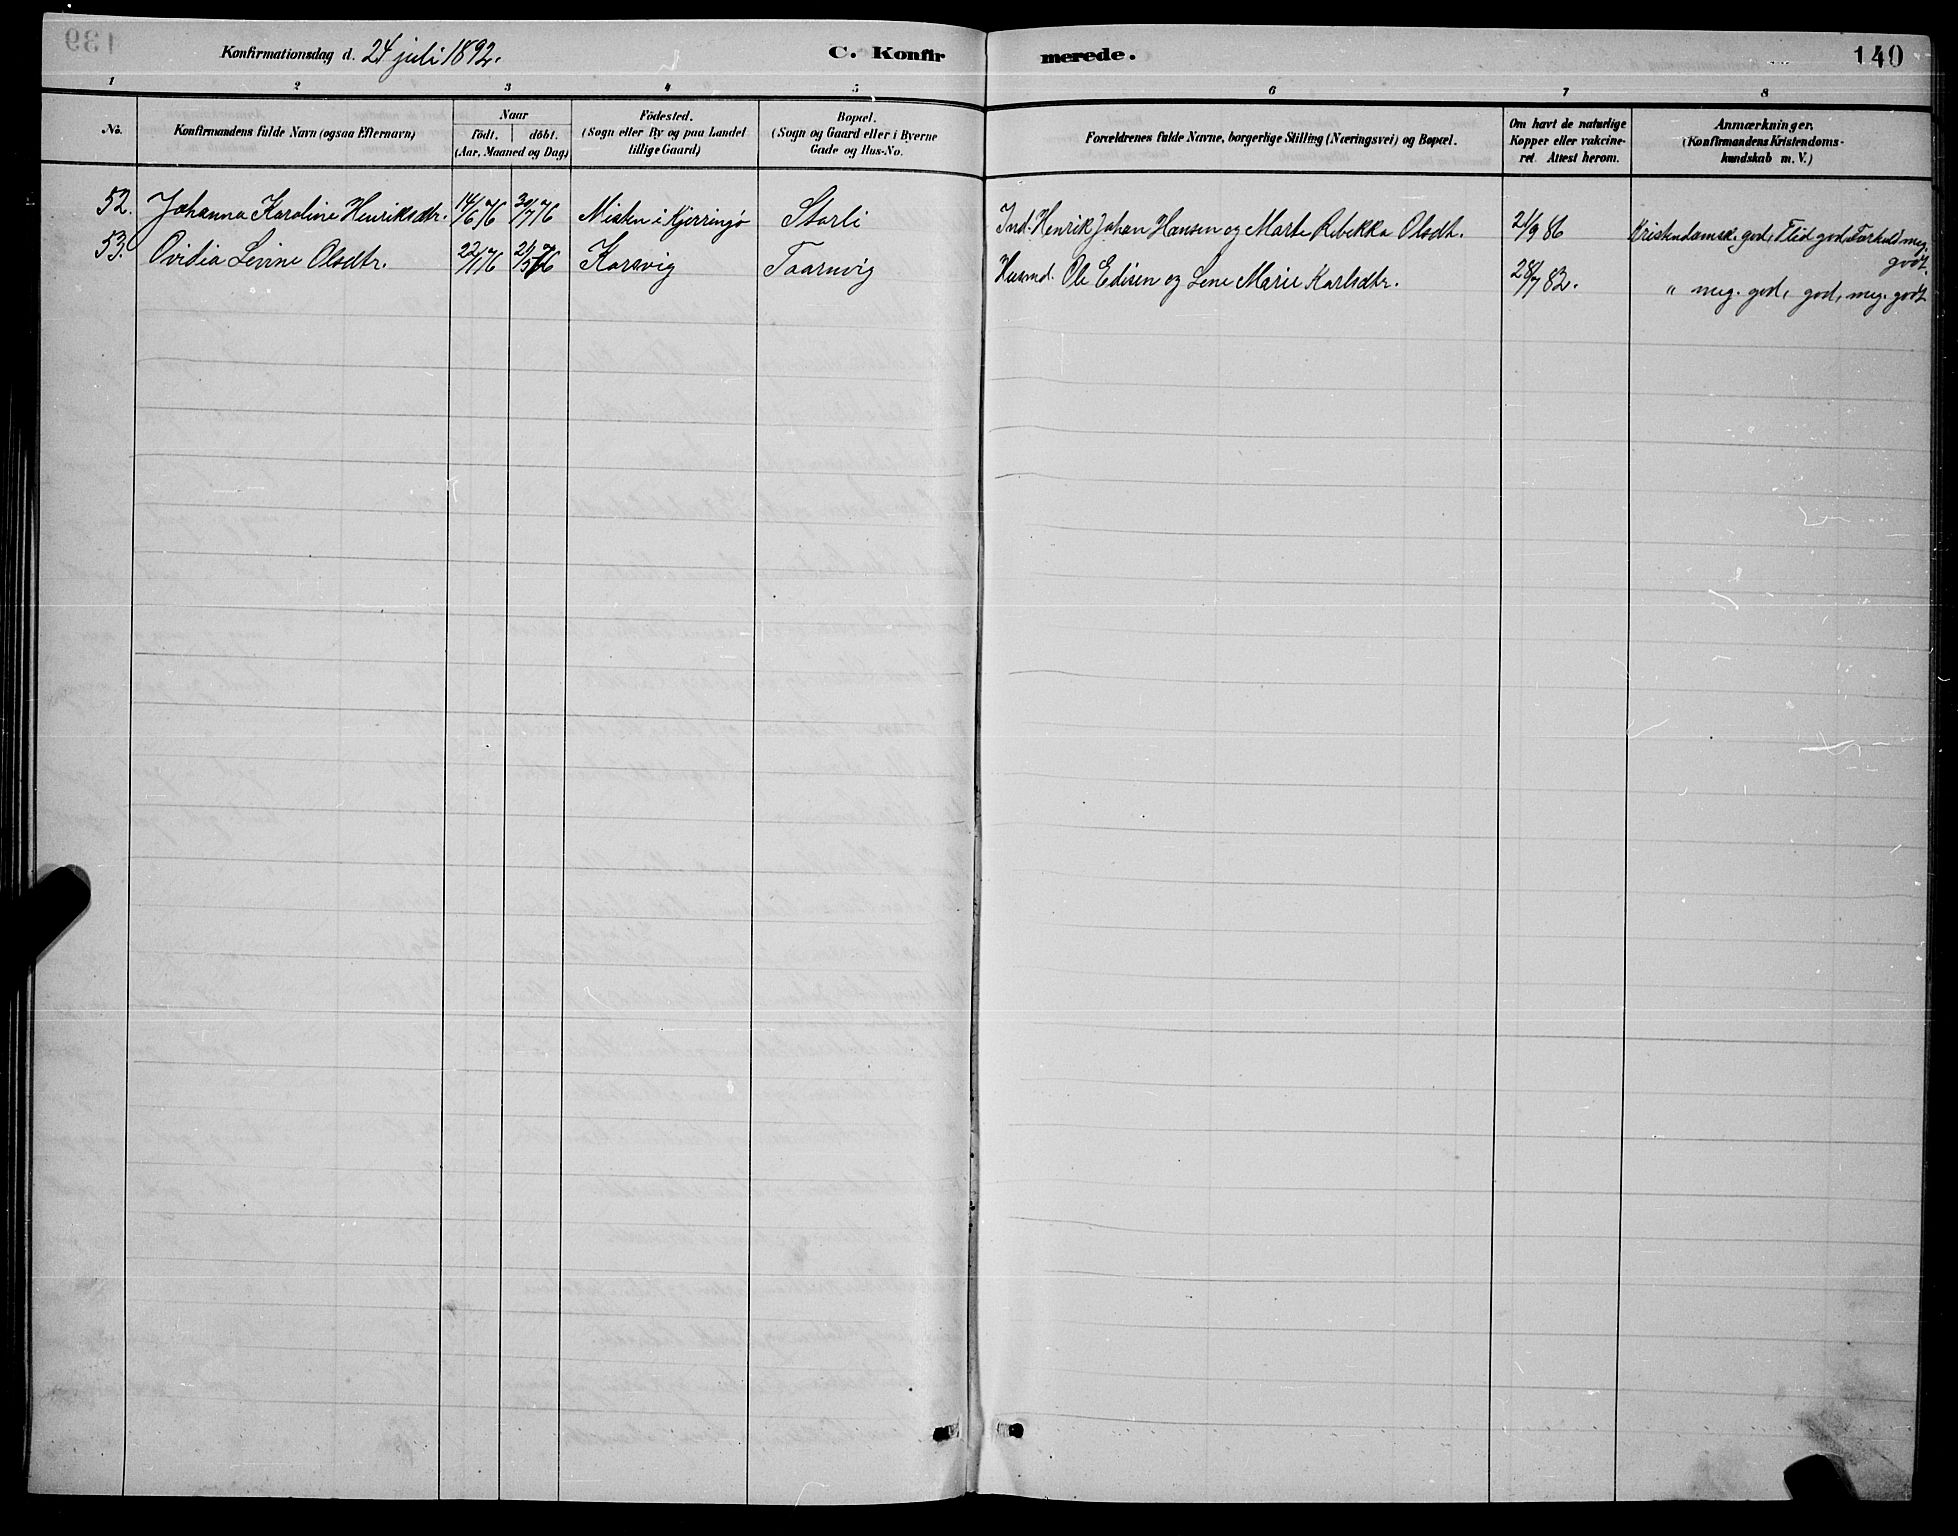 139
Konfirmationsdag d. 24 juli 1892.
C. Konfirmerede.
140
1 2 3 4 5 6 7 8
No.
Konfirmandens fulde Navn (ogsaa Efternavn)
Naar
födt. döbt.
(Aar, Maaned og Dag)
Födested.
(Sogn eller By og paa Landet
tillige Gaard)
Bopæl.
(Sogn og Gaard eller i Byerne
Gade og Hus-No.
Forældrenes fulde Navne, borgerlige Stilling (Næringsvei) og Bopæl.
Om havt de naturlige
Kopper eller vakcine-
ret. Attest herom.
Anmærkninger.
(Konfirmandens Kristendoms-
kundskab m. V.)
52. Johanna Karoline Henriksdtr. 14/6 76 30/7 76 Misten i Kjerringö Storli Ind. Henrik Johan Hansen og Marte Rebekka Olsdt. 21/9 86 Kristendomsk. god, Flid god, Forhold meg. godt.
53. Ovidia Levine Olsdtr. 22/1 76 21/5 76 Karsvig Taarnvig Husmd. Ole Edisen og Lene Marie Karlsdtr. 28/7 82. " meg. god, god, meg. godt